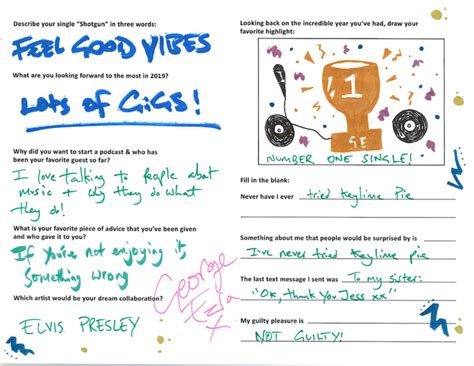 Describe your single "Shotgun" in three words:
FEEL GOOD VIBES
What are you looking forward to the most in 2019?
LOTS OF GIGS!
Why did you want to start a podcast & who has
been your favorite guest so far?
I love talking to people about
music + why they do what
they do!
What is your favorite piece of advice that you've been given
and who gave it to you?
If you're not enjoying it,
something wrong
Which artist would be your dream collaboration?
ELVIS PRESLEY
George
Ezra
x
Looking back on the incredible year you've had, draw your
favorite highlight:
1
GE
NUMBER ONE SINGLE!
Fill in the blank:
Never have I ever tried Keylime Pie
Something about me that people would be surprised by is
I've never tried Keylime pie
The last text message I sent was To my sister:
"Ok thank you Jess xx"
My guilty pleasure is
NOT GUILTY!